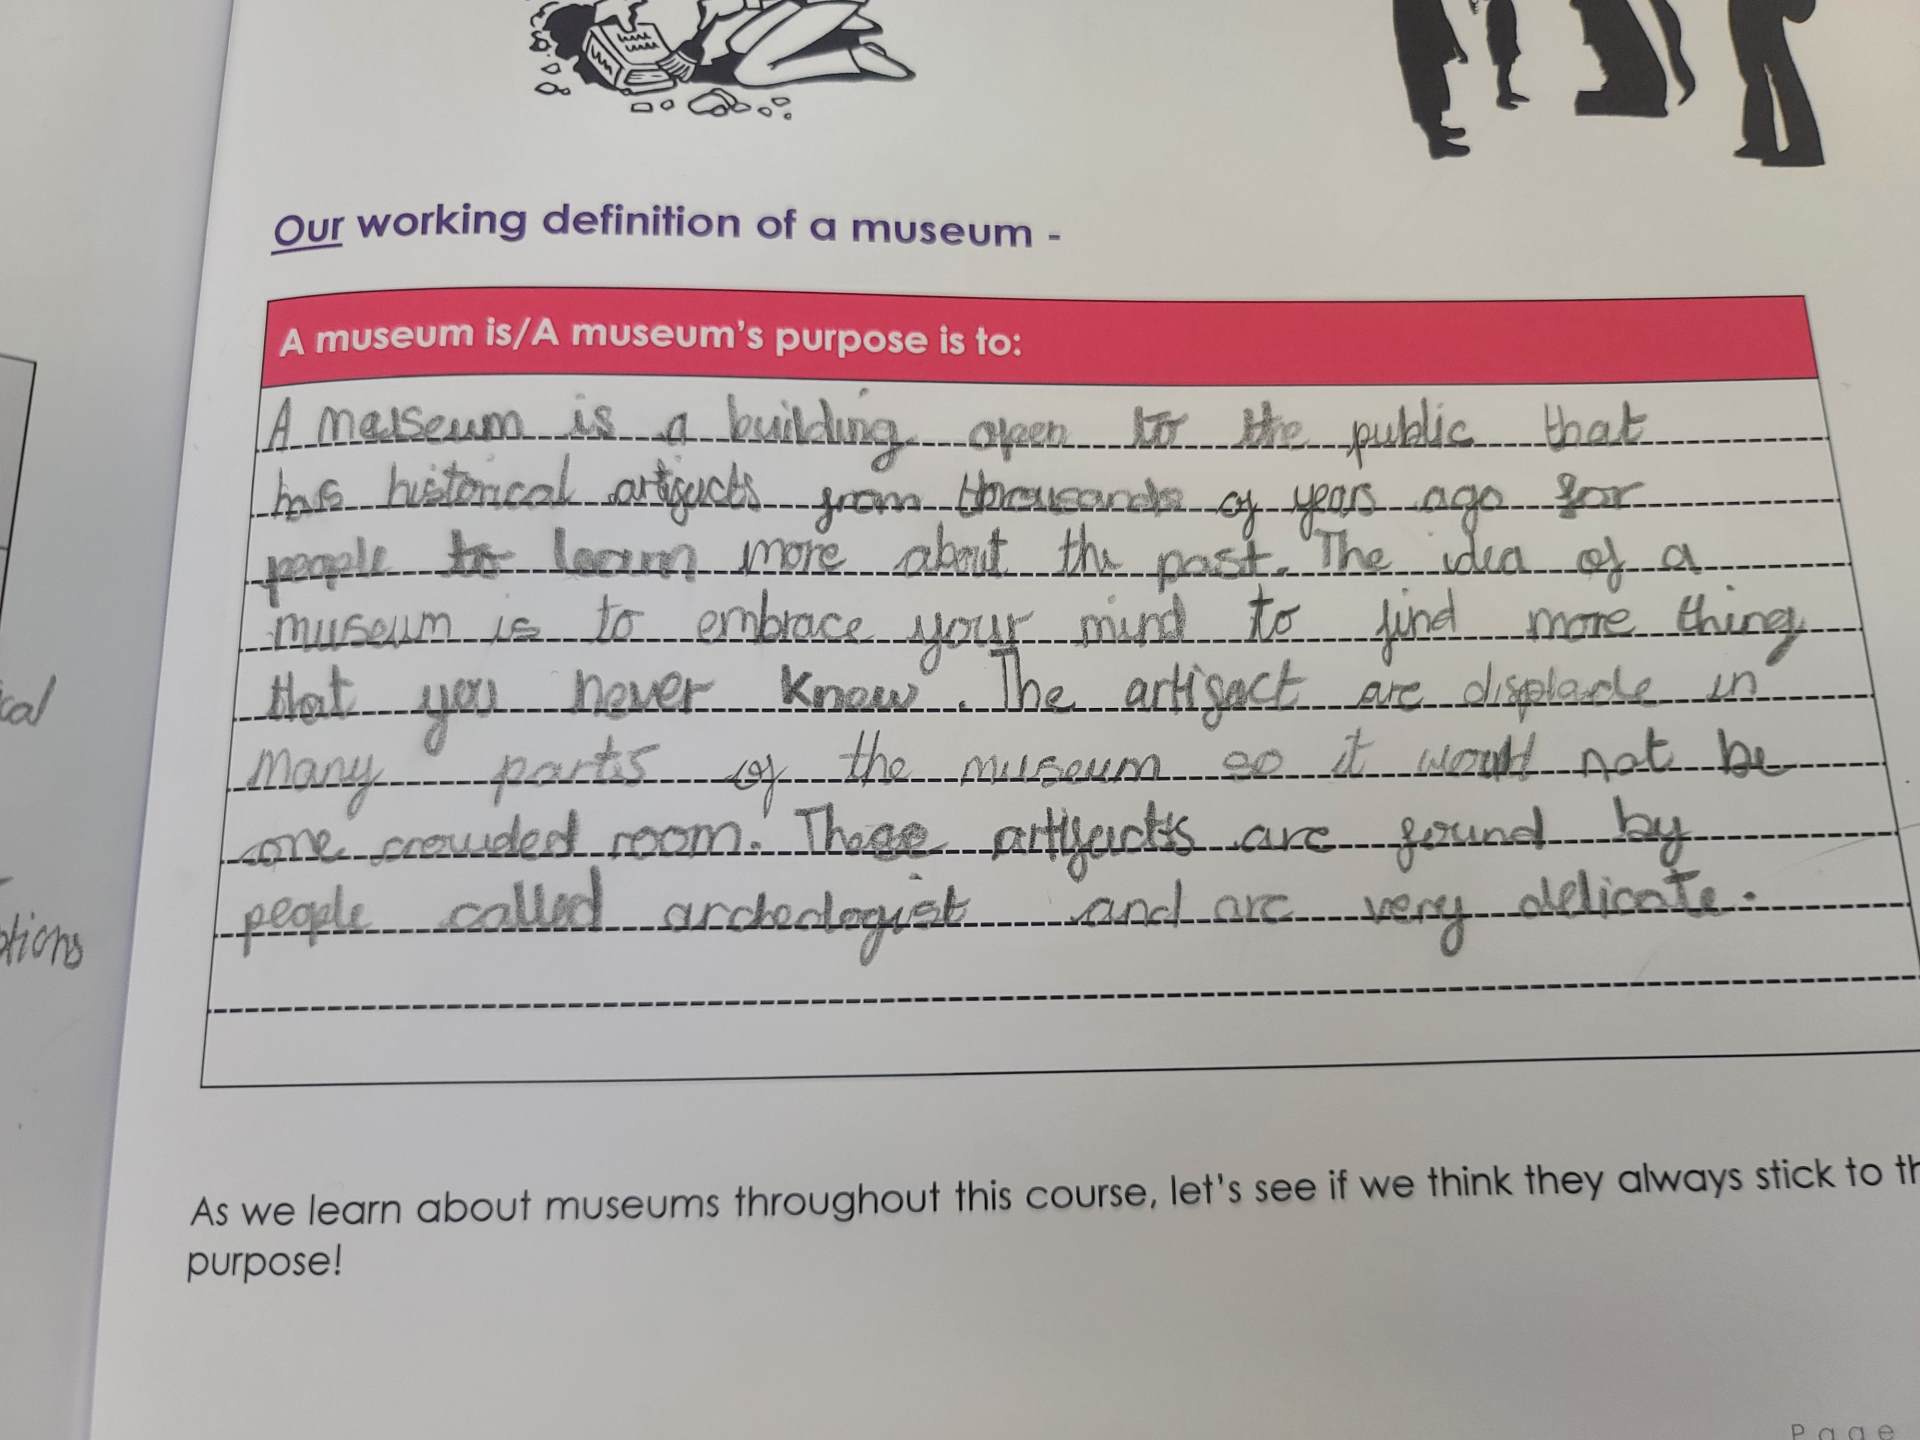 Our working definition of a museum -
A museum is/A museum's purpose is to:
A maiseum is a building open to the public that
has historical artifacts from thousands of years ago for
people to learn more about the past. The idea of a
museum is to embrace your mind to find more thing
that you never know. The artifact are displade in
many parts of the museum so it would not be
one crowded room. These artifacts are found by
people called archeologist and are very delicate.
As we learn about museums throughout this course, let's see if we think they always stick to th
purpose!
cal
otions
Page